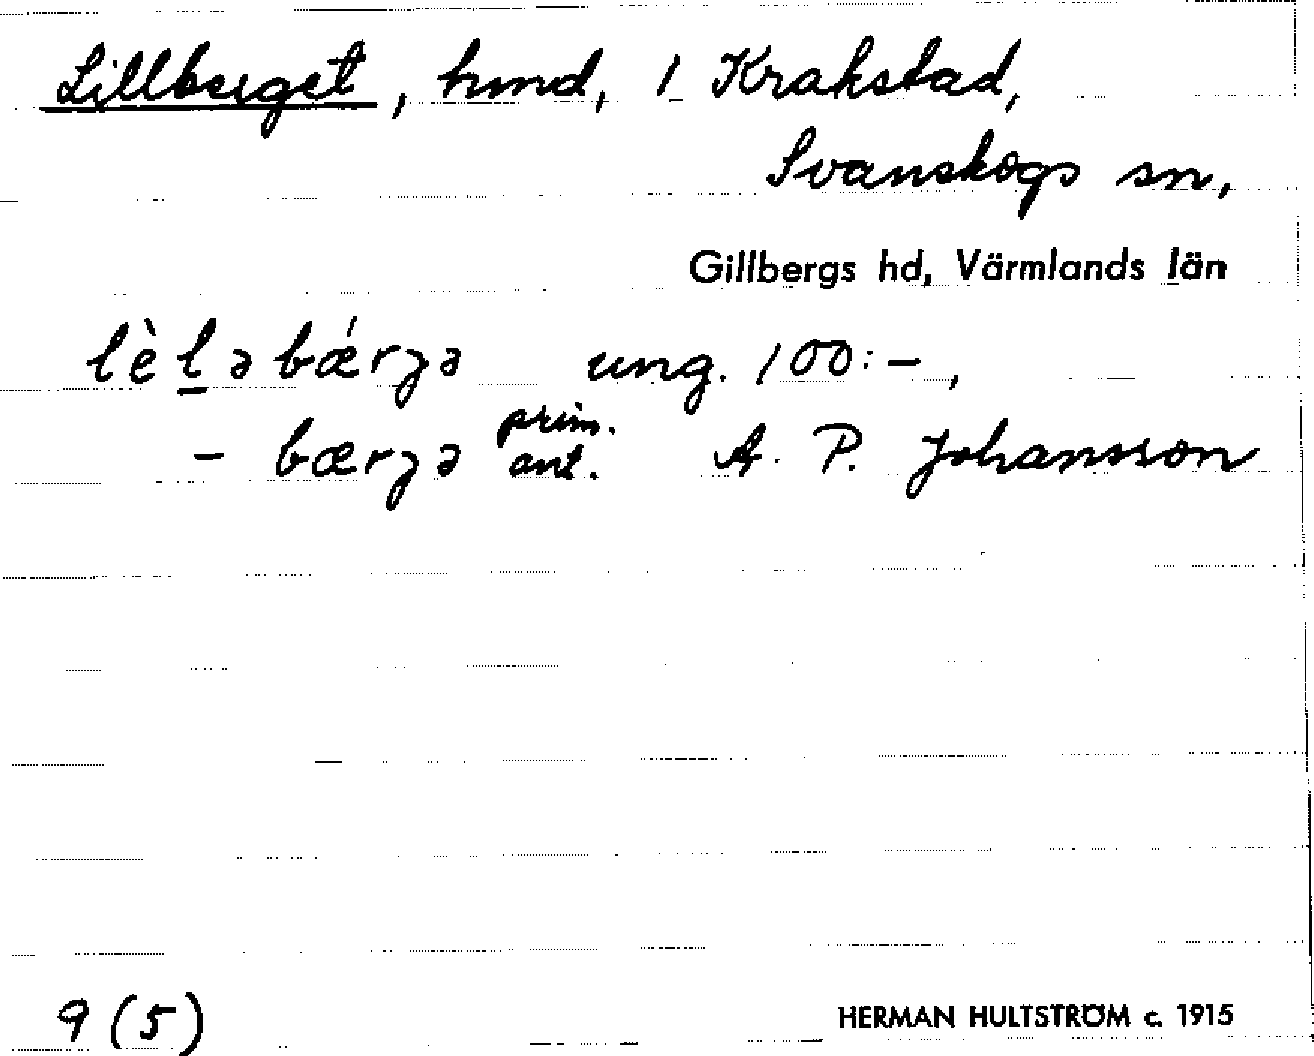 Lillberget, hmd, 1 Krakstad,
Svanskogs sn,
Gillbergs hd, Värmlands län
lèḻə bǽrȝə ung. 100:-,
- bærȝə prim. ant. A. P. Johansson
9 (5)
HERMAN HULTSTRÖM c. 1915